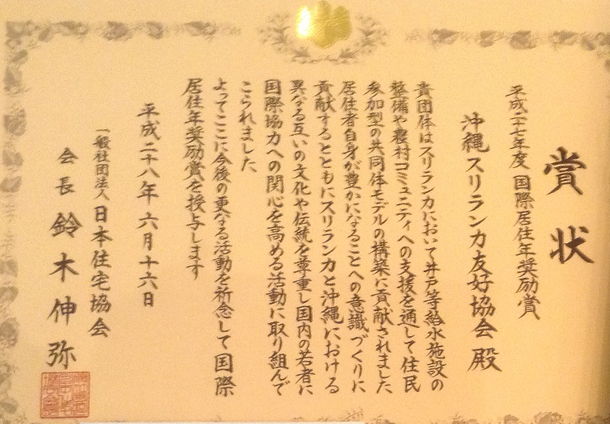 賞状
平成二十七年度 国際居住年奨励賞
沖縄スリランカ友好協会 殿
貴団体はスリランカにおいて井戸等給水施設の
整備や農村コミュニティへの支援を通して住民
参加型の共同体モデルの構築に貢献されました
居住者自身が豊かになることへの意識づくりに
貢献するとともにスリランカと沖縄における
異なる互いの文化や伝統を尊重し国内の若者に
国際協力への関心を高める活動に取り組んで
こられました
よってここに今後の更なる活動を祈念して国際
居住年奨励賞を授与します
平成二十八年六月十六日
一般社団法人 日本住宅協会
会長 鈴木伸弥